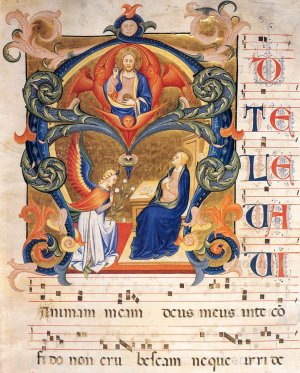 D
TE
LE
UA
UI
Animam meam deus meus inte cō
fi do non eru bescam neque irri de